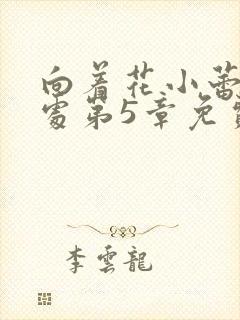 向着花小蕾
处第5章免费
李雲龍